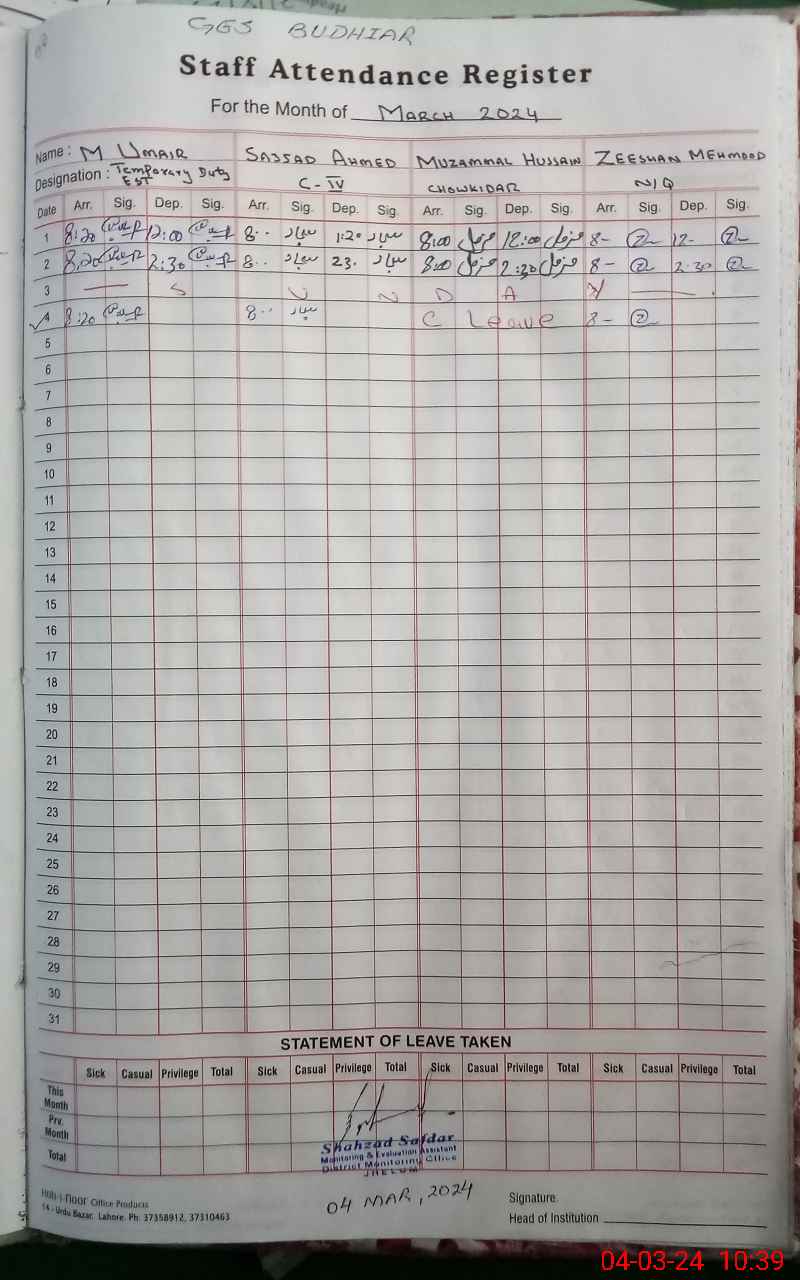 GES BUDHIAR
Staff Attendance Register
For the Month of MARCH 2024
Name : M UMAIR SAJJAD AHMED MUZAMMAL HUSSAIN ZEESHAN MEHMOOD
Designation : Temporary Duty EST C-IV CHOWKIDAR N/Q
Date Arr. Sig. Dep. Sig. Arr. Sig. Dep. Sig. Arr. Sig. Dep. Sig. Arr. Sig. Dep. Sig.
1 8:20 12:00 8.. سجاد 1:20 سجاد 8:00 مزمل 12:00 مزمل 8- 12-
2 8:20 2:30 8.. سجاد 2:30 سجاد 8:00 مزمل 2:30 مزمل 8- 2.30
3 S U N D A Y
4 8:20 8.. سجاد C Leave 8-
5
6
7
8
9
10
11
12
13
14
15
16
17
18
19
20
21
22
23
24
25
26
27
28
29
30
31
STATEMENT OF LEAVE TAKEN
Sick Casual Privilege Total Sick Casual Privilege Total Sick Casual Privilege Total Sick Casual Privilege Total
This Month
Prv. Month
Total
Shahzad Safdar
Monitoring & Evaluation Assistant
District Monitoring Office
JHELUM
04 MAR, 2024
Office Products
14 - Urdu Bazar, Lahore. Ph: 37358912, 37310463
Signature
Head of Institution
04-03-24 10:39